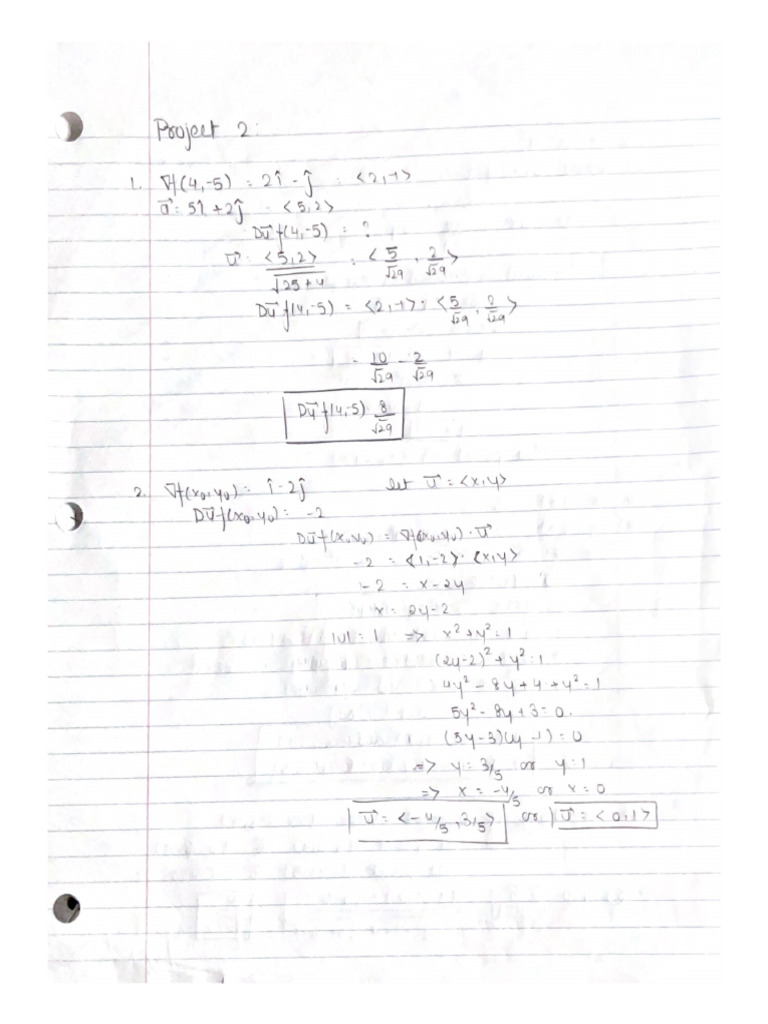 Project 2:
1. ∇f(4,-5) = 2î - ĵ = <2,-1>
u⃗ = 5î + 2ĵ = <5,2>
Du⃗ f(4,-5) = ?
u⃗ = <5,2>/√25+4 = <5/√29, 2/√29>
Du⃗ f(4,-5) = <2,-1> · <5/√29, 2/√29>
= 10/√29 - 2/√29
Du⃗ f(4,-5) 8/√29
2. ∇f(x₀,y₀) = î - 2ĵ let u⃗ = <x,y>
Du⃗ f(x₀,y₀) = -2
Du⃗ f(x₀,y₀) = ∇f(x₀,y₀) · u⃗
-2 = <1,-2> · <x,y>
-2 = x - 2y
x = 2y - 2
|u| = 1 => x² + y² = 1
(2y-2)² + y² = 1
4y² - 8y + 4 + y² = 1
5y² - 8y + 3 = 0.
(5y-3)(y-1) = 0
=> y = 3/5 or y = 1
=> x = -4/5 or x = 0
u⃗ = <-4/5, 3/5> or u⃗ = <0,1>